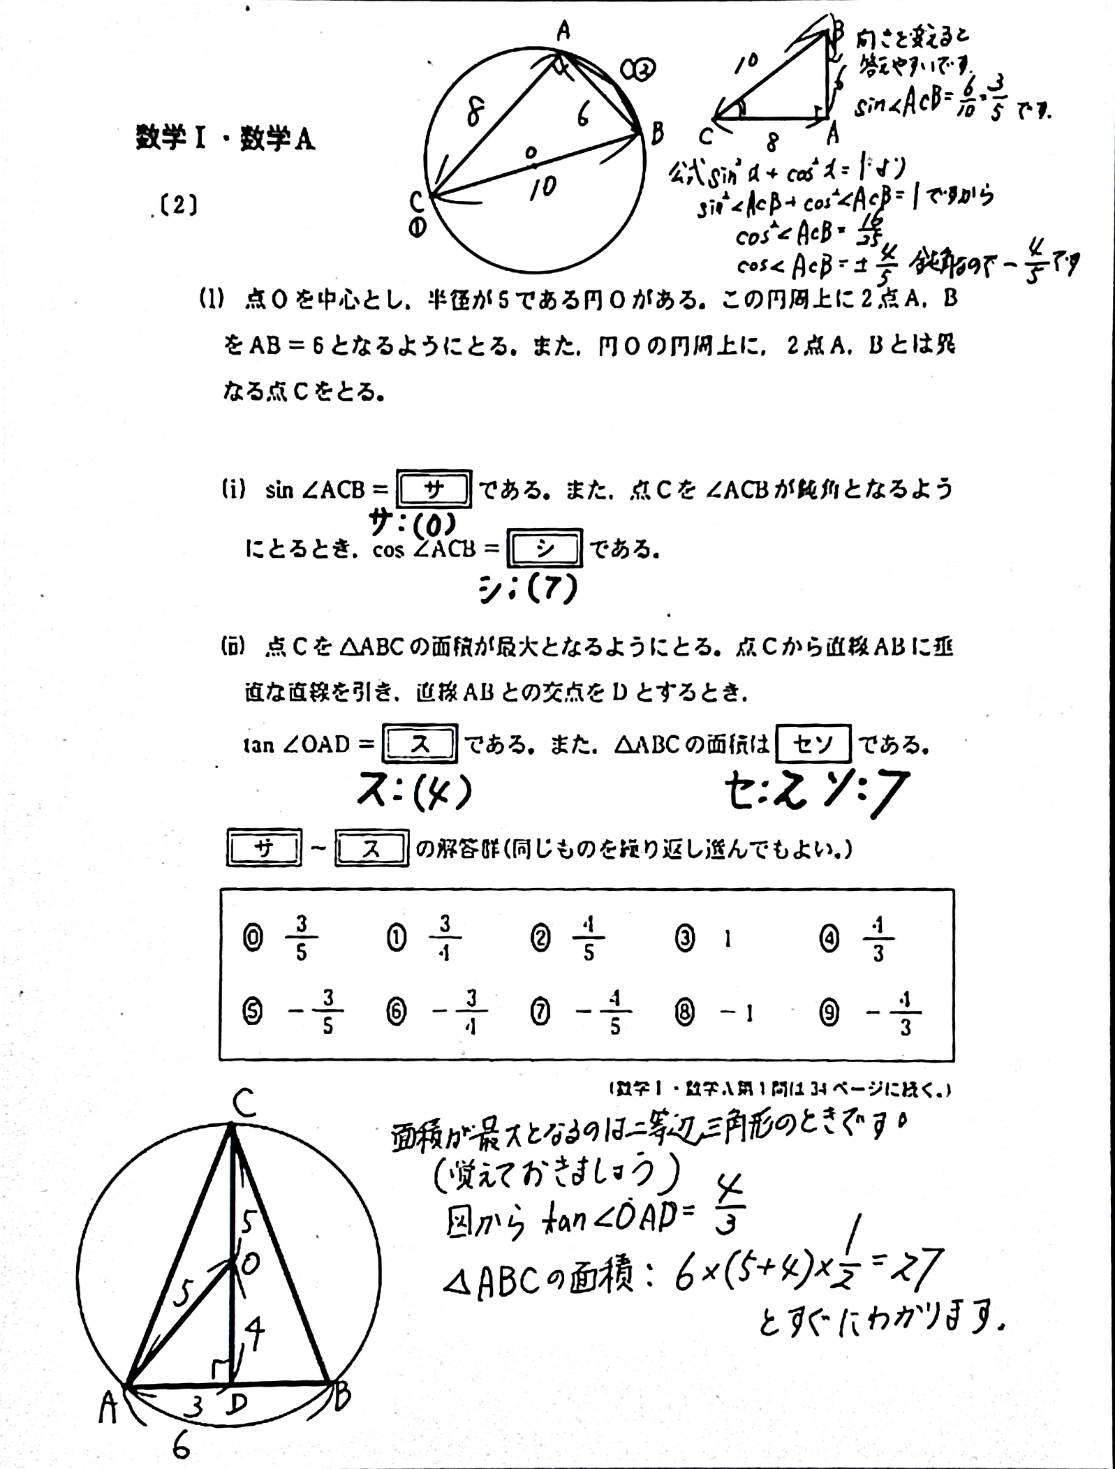 A
8
6
B
O
10
C
①
○③
B
10
6
C
8
A
向きを変えると
答えやすいです。
sin∠ACB=6/10=3/5 です。
公式sin²α+cos²α=1より
sin²∠ACB+cos²∠ACB=1ですから
cos²∠ACB=16/25
cos∠ACB=±4/5 鈍角なので-4/5です
数学Ⅰ・数学A
〔2〕
(1) 点Oを中心とし，半径が5である円Oがある。この円周上に2点A，B
をAB=6となるようにとる。また，円Oの円周上に，2点A，Bとは異
なる点Cをとる。
(i) sin∠ACB= サ である。また，点Cを∠ACBが鈍角となるよう
サ:(0)
にとるとき，cos∠ACB= シ である。
シ:(7)
(ii) 点Cを△ABCの面積が最大となるようにとる。点Cから直線ABに垂
直な直線を引き，直線ABとの交点をDとするとき，
tan∠OAD= ス である。また，△ABCの面積は セソ である。
ス:(4) セ:2 ソ:7
サ ～ ス の解答群(同じものを繰り返し選んでもよい。)
⓪ 3/5 ① 3/4 ② 4/5 ③ 1 ④ 4/3
⑤ -3/5 ⑥ -3/4 ⑦ -4/5 ⑧ -1 ⑨ -4/3
(数学Ⅰ・数学A第1問は34ページに続く。)
面積が最大となるのは二等辺三角形のときです。
(覚えておきましょう)
図から tan∠OAD=4/3
△ABCの面積: 6×(5+4)×1/2=27
とすぐにわかります。
C
5
O
5
4
A
3
D
B
6